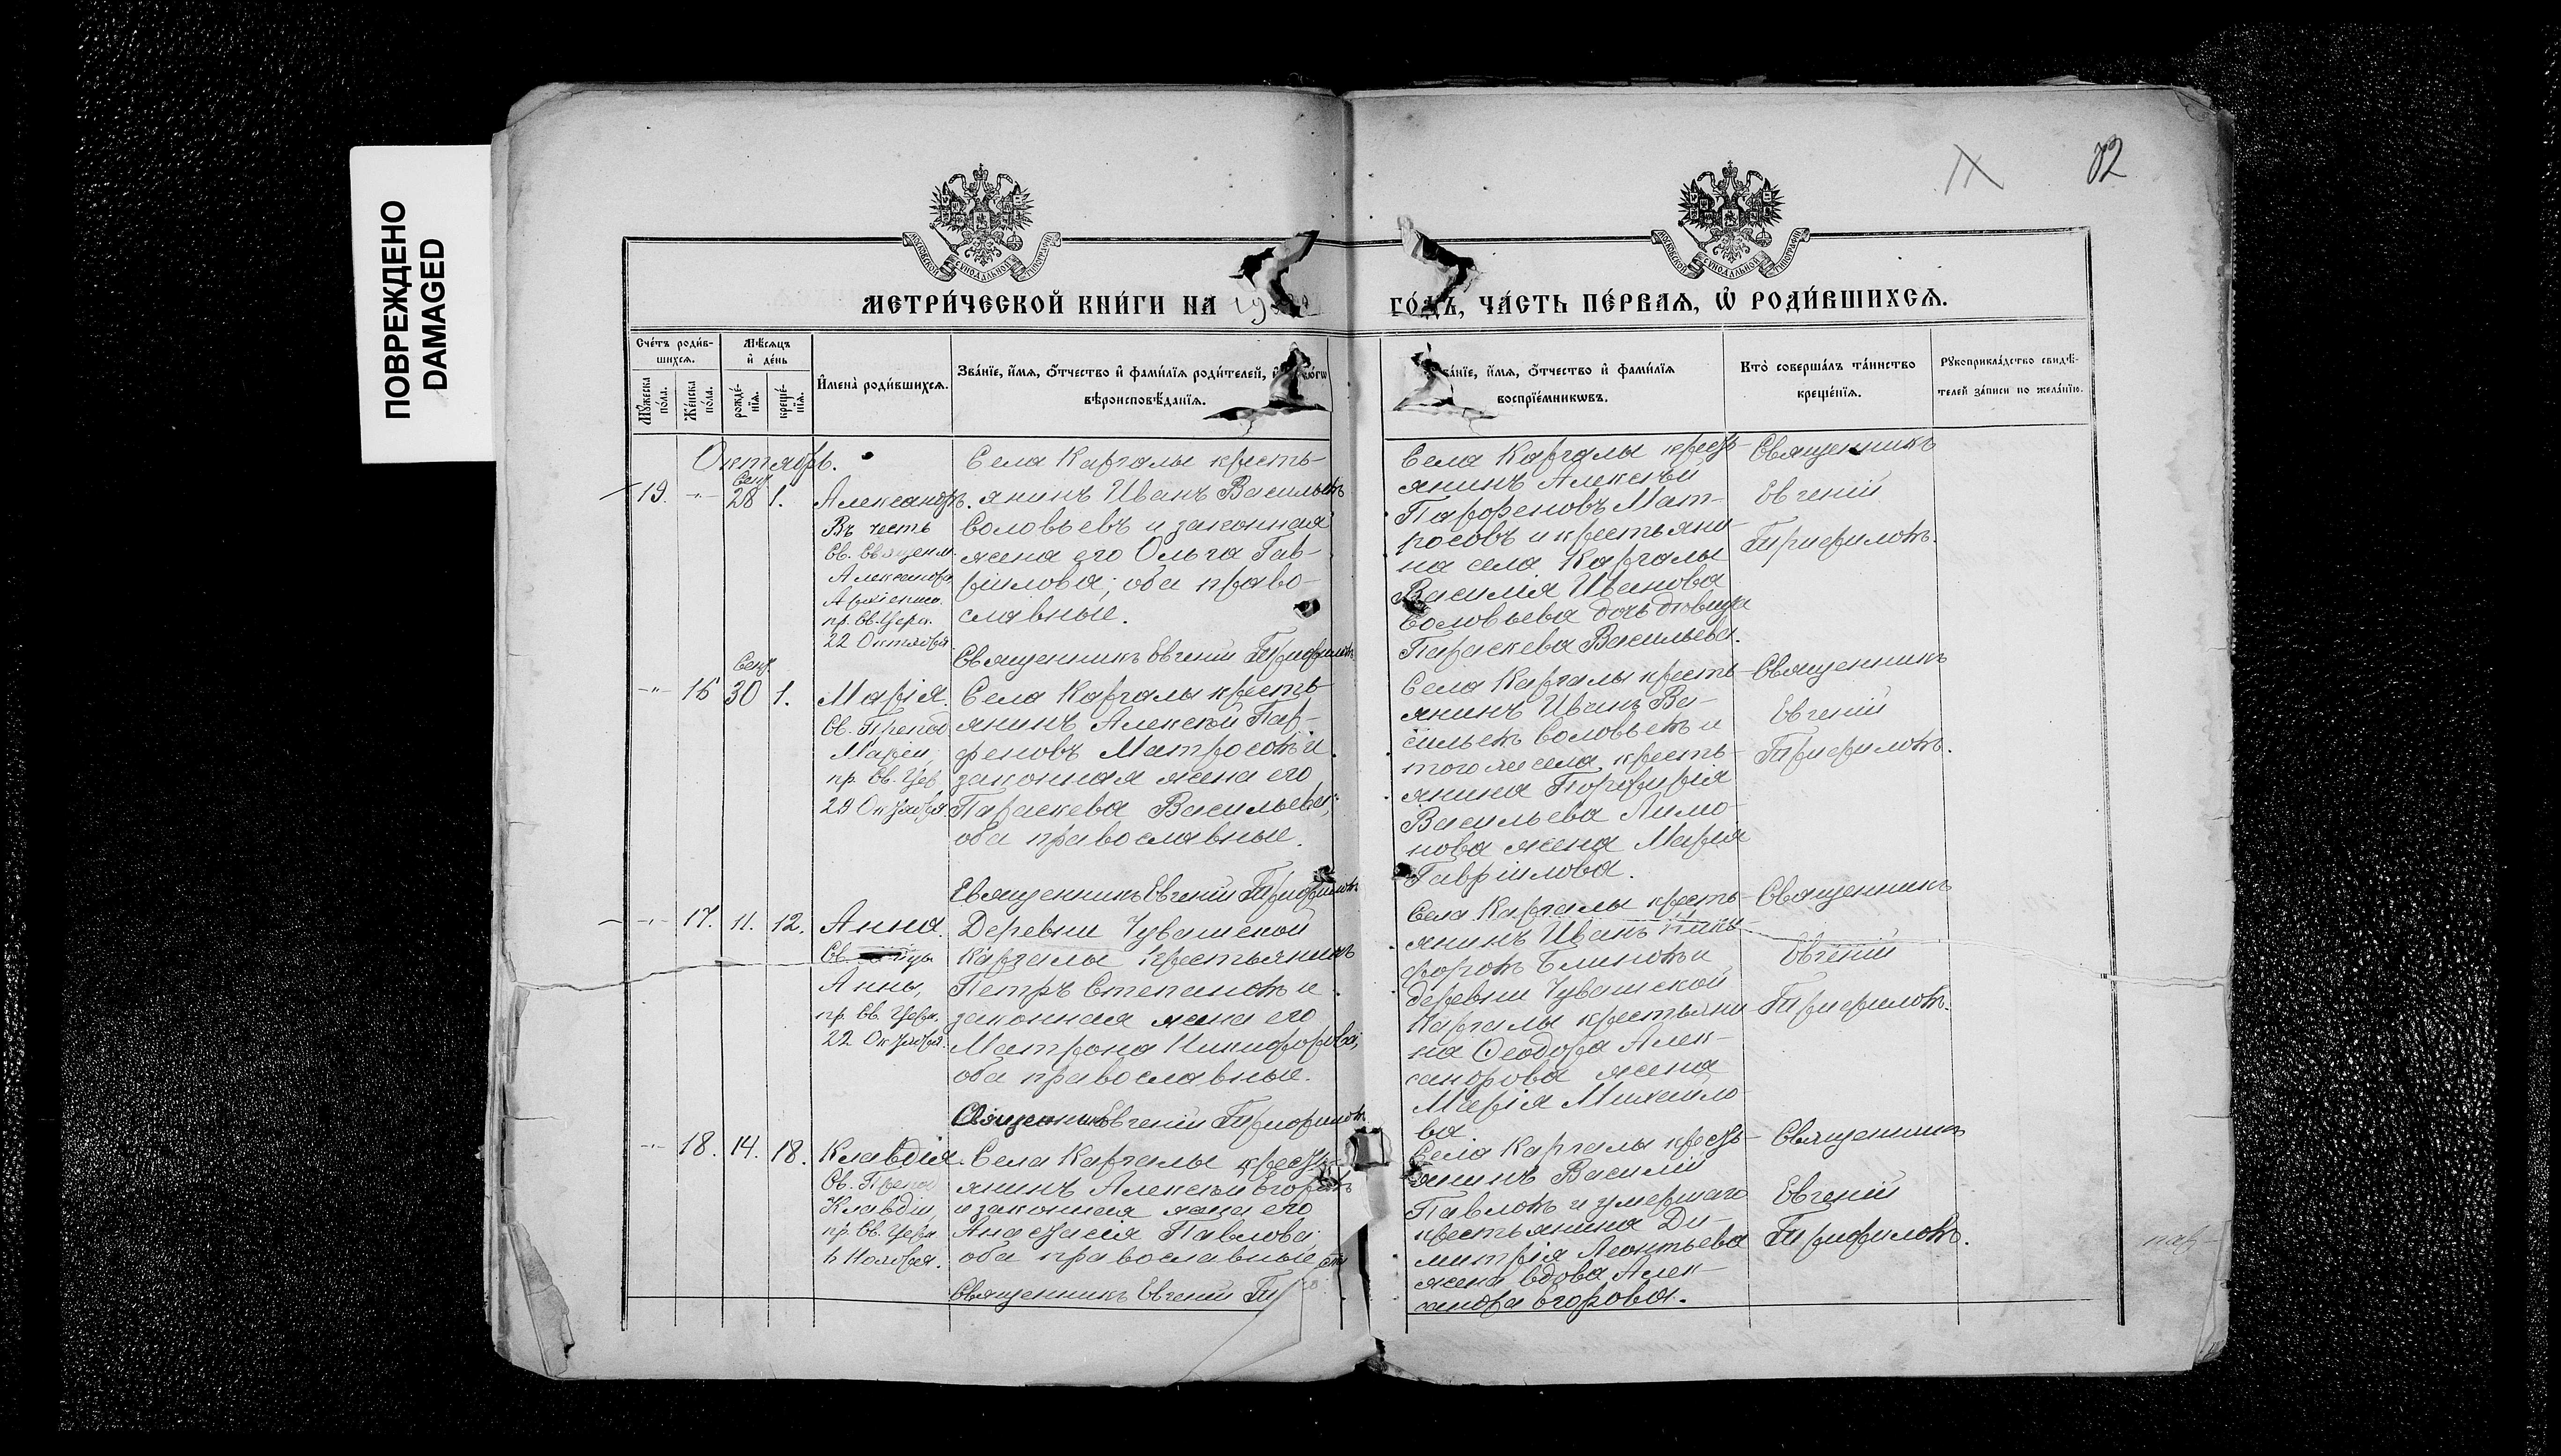 ПОВРЕЖДЕНО
DAMAGED
IX
МОСКОВСКОЙ СУНОДАЛЬНОЙ ТИПОГРАФІИ
МОСКОВСКОЙ СУНОДАЛЬНОЙ ТИПОГРАФІИ
МЕТРИ́ЧЕСКОЙ КНИ́ГИ НА 19
ГО́ДЪ, ЧА́СТЬ ПЕ́РВАѦ, Ѡ҆ РОДИ́ВШИХСѦ.
Сче́тъ роди́в-
шихсѧ.
Мꙋ́жеска по́ла.
Же́нска по́ла.
Мѣ́сѧцъ
и҆ де́нь
рожде́-
нїѧ.
креще́-
нїѧ.
И҆мена̀ роди́вшихсѧ.
Зва́нїе, и҆́мѧ, ѻ҆́тчество и҆ фами́лїѧ роди́телей, и҆
вѣроисповѣ́данїѧ.
и҆́мѧ, ѻ҆́тчество и҆ фами́лїѧ
воспрїе́мникѡвъ.
Кто̀ соверша́лъ та́инство
креще́нїѧ.
Рꙋкоприкла́дство свидѣ́-
телей за́писи по жела́нїю.
Октябрь.
19. -"- Сент. 28 1.
Александръ.
Въ честь
Св. Священм.
Александра
Архіепис.
пр. Св. Церк.
22 Октября
Села Каргалы кресть-
янинъ Иванъ Васильевъ
Соловьевъ и законная
жена его Ольга Гав-
ріилова; оба право-
славные.
Священникъ Евгеній Трифиловъ
Села Каргалы крест-
янинъ Алексѣй
Парфеновъ Мат-
росовъ и крестьяни-
на села Каргалы
Василія Иванова
Соловьева дочь дѣвица
Параскева Васильева.
Священникъ
Евгеній
Трифиловъ.
-"- 16 Сент. 30 1.
Марія.
Св. Препод
Маріи,
пр. Св. Цер
29 Октября.
Села Каргалы кресть-
янинъ Алексѣй Пар-
феновъ Матросовъ и
законная жена его
Параскева Васильева;
оба православные.
Священникъ Евгеній Трифиловъ
Села Каргалы кресть-
янинъ Иванъ Ва-
сильевъ Соловьевъ и
того же села кресть-
янина Порфирія
Васильева Лимо-
нова жена Марія
Гавріилова.
Священникъ
Евгеній
Трифиловъ.
-"- 17. 11. 12.
Анна.
Св.
Анны,
пр. Св. Церк.
22 Октября.
Деревни Чувашской
Каргалы крестьянинъ
Петръ Степановъ и
законная жена его
Матрона Никифорова;
оба православные.
Священникъ Евгеній Трифиловъ
Села Каргалы кресть-
янинъ Иванъ Ники-
форовъ Блиновъ и
деревни Чувашской
Каргалы крестьяни-
на Ѳеодора Алек-
сандрова жена
Марія Михайло-
ва
Священникъ
Евгеній
Трифиловъ.
-"- 18. 14. 18.
Клавдія.
Св. Препод
Клавдіи,
пр. Св. Церк
6 Ноября.
Села Каргалы кресть-
янинъ Алексѣй Егоровъ
и законная жена его
Анастасія Павлова;
оба православные
Священникъ Евгеній
Села Каргалы кресть-
янинъ Василій
Павловъ и умершаго
крестьянина Ди-
митрія Леонтьева
жена вдова Алек-
сандра Егорова.
Священникъ
Евгеній
Трифиловъ.